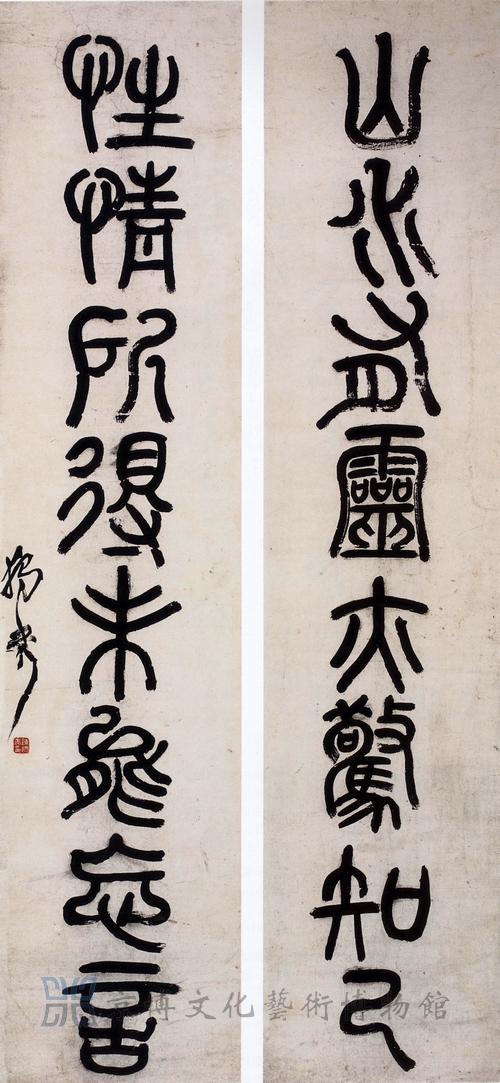 山水有靈亦驚知己
性情所得未能忘言
京博文化藝術博物館